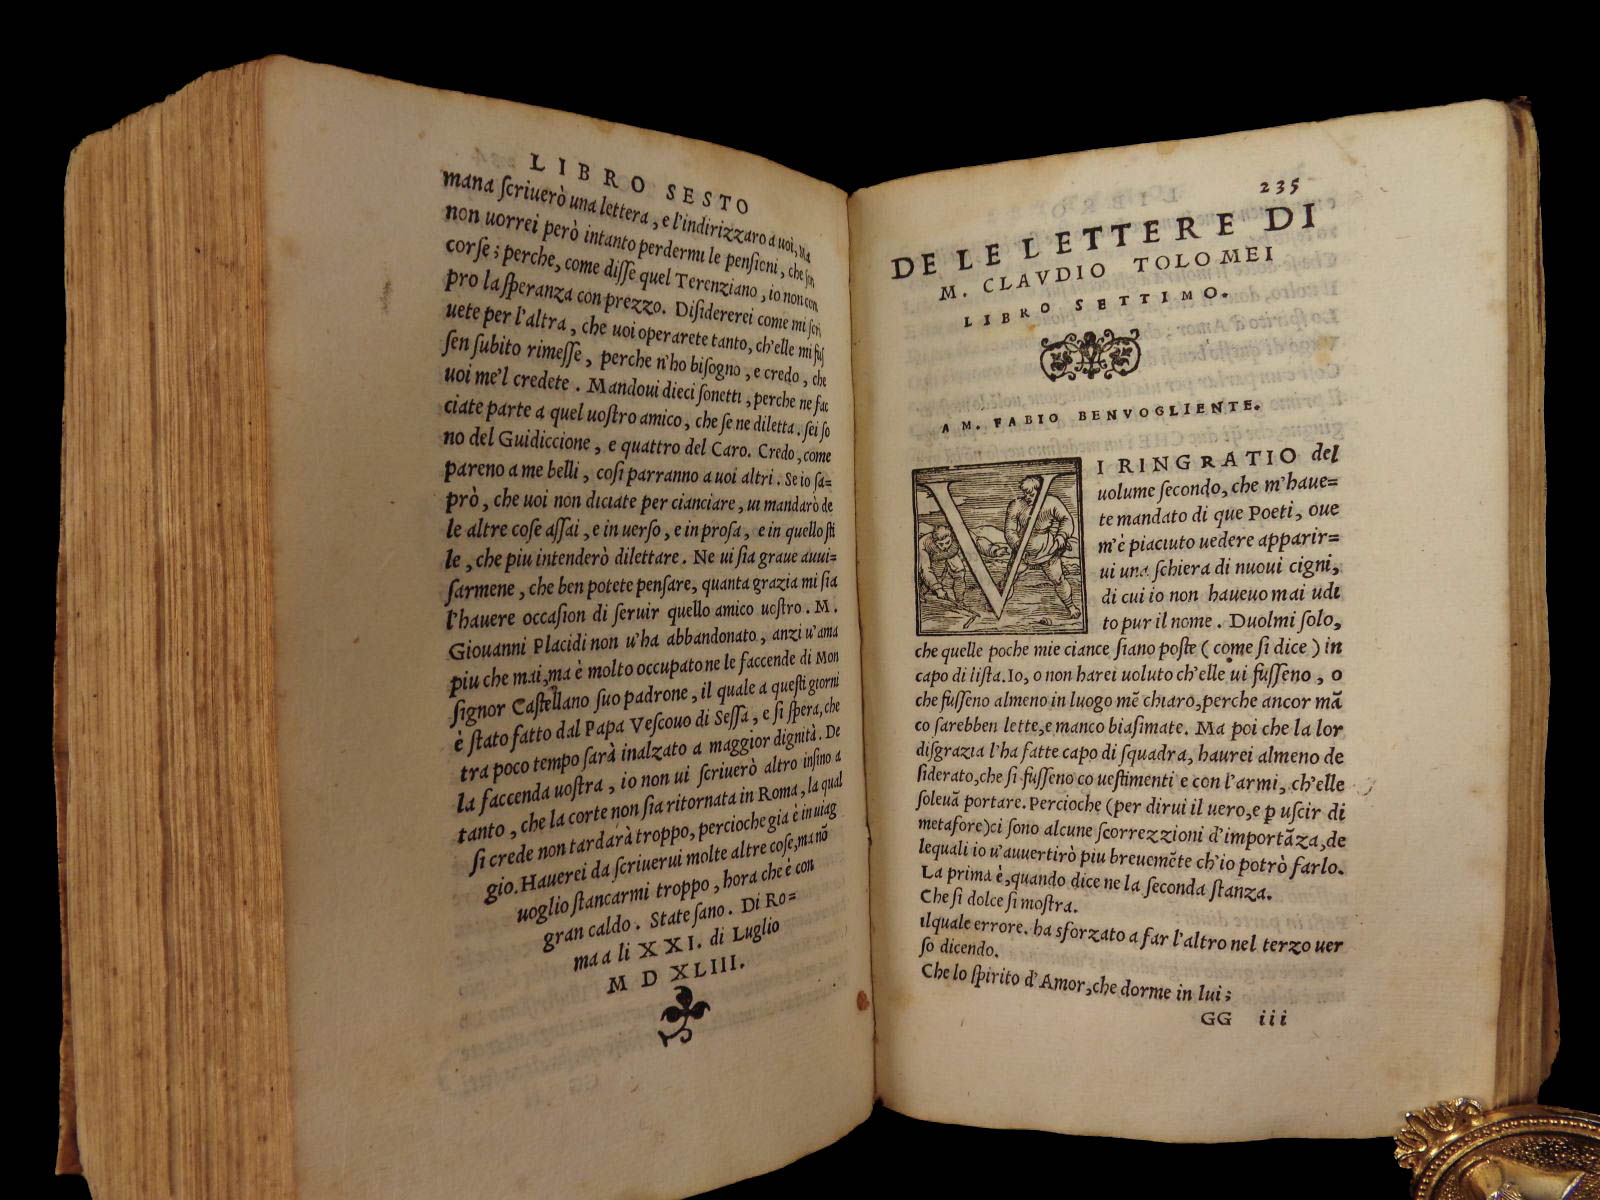 LIBRO SESTO
mana ſcriuerò una lettera, e l'indirizzaro a uoi, Ma
non uorrei però intanto perdermi le penſioni, che ſon
corſe; perche, come diſſe quel Terenziano, io non con
pro la ſperanza con prezzo. Diſidererei come mi ſcri
uete per l'altra, che uoi operarete tanto, ch'elle mi fuſ
ſen ſubito rimeſſe, perche n'ho biſogno, e credo, che
uoi me'l credete. Mandoui dieci ſonetti, perche ne fac
ciate parte a quel uoſtro amico, che ſe ne diletta. ſei ſo
no del Guidiccione, e quattro del Caro. Credo, come
pareno a me belli, coſi parranno a uoi altri. Se io ſa=
prò, che uoi non diciate per cianciare, ui mandarò de
le altre coſe aſſai, e in uerſo, e in proſa, e in quello ſti
le, che piu intenderò dilettare. Ne ui ſia graue auui=
ſarmene, che ben potete penſare, quanta grazia mi ſia
l'hauere occaſion di ſeruir quello amico uoſtro. M.
Giouanni Placidi non u'ha abbandonato, anzi u'ama
piu che mai, ma è molto occupato ne le faccende di Mon
ſignor Caſtellano ſuo padrone, il quale a queſti giorni
è ſtato fatto dal Papa Veſcouo di Seſſa, e ſi ſpera, che
tra poco tempo ſarà inalzato a maggior dignità. De
la faccenda uoſtra, io non ui ſcriuerò altro inſino a
tanto, che la corte non ſia ritornata in Roma, la qual
ſi crede non tardarà troppo, percioche gia è in uiag
gio. Hauerei da ſcriuerui molte altre coſe, ma nõ
uoglio ſtancarmi troppo, hora che è con
gran caldo. State ſano. Di Ro=
ma a li XXI. di Luglio
M D XLIII.
235
DE LE LETTERE DI
M. CLAVDIO TOLOMEI
LIBRO SETTIMO.
A M. FABIO BENVOGLIENTE.
VI RINGRATIO del
uolume ſecondo, che m'haue=
te mandato di que Poeti, oue
m'è piaciuto uedere apparir=
ui una ſchiera di nuoui cigni,
di cui io non haueuo mai udi
to pur il nome. Duolmi ſolo,
che quelle poche mie ciance ſiano poſte ( come ſi dice ) in
capo di liſta. Io, o non harei uoluto ch'elle ui fuſſeno, o
che fuſſeno almeno in luogo mẽ chiaro, perche ancor mã
co ſarebben lette, e manco biaſimate. Ma poi che la lor
diſgrazia l'ha fatte capo di ſquadra, haurei almeno de
ſiderato, che ſi fuſſeno co ueſtimenti e con l'armi, ch'elle
ſoleuã portare. Percioche (per dirui il uero, e ꝑ uſcir di
metafore) ci ſono alcune ſcorrezzioni d'importãza, de
lequali io u'auuertirò piu breuemẽte ch'io potrò farlo.
La prima è, quando dice ne la ſeconda ſtanza.
Che ſi dolce ſi moſtra.
ilquale errore. ha sforzato a far l'altro nel terzo uer
ſo dicendo.
Che lo ſpirito d'Amor, che dorme in lui;
GG iii